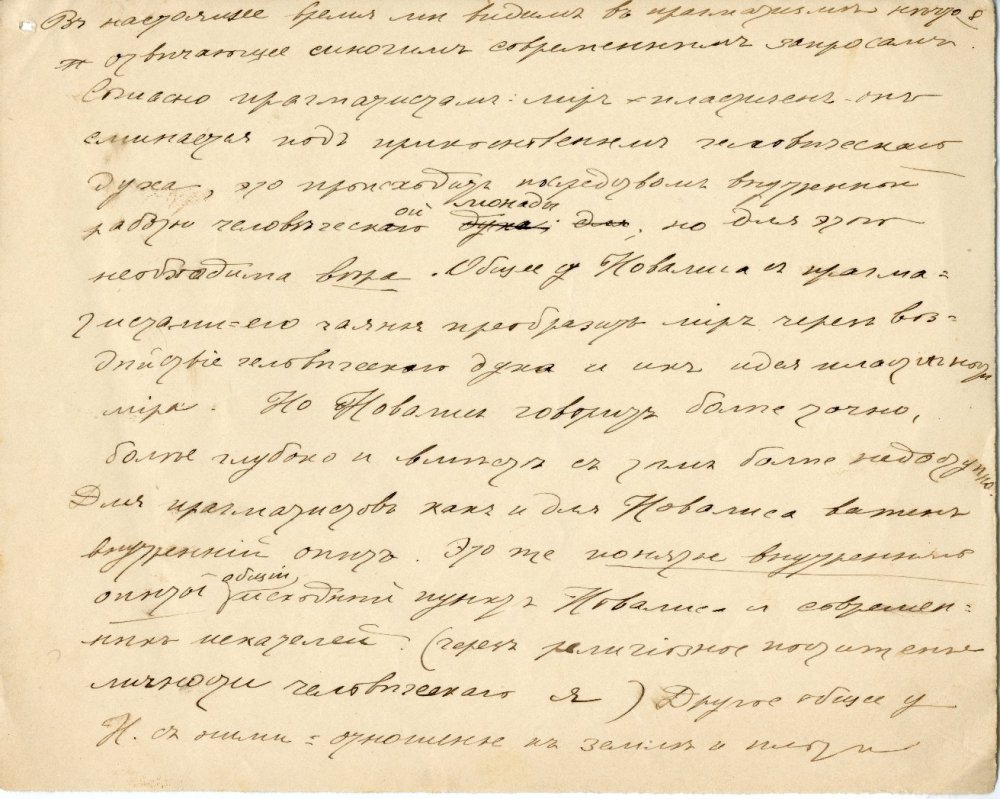 Въ настоящее время мы видимъ въ прагматизмѣ нѣчто
отвѣчающее многимъ современнымъ запросамъ.
Согласно прагматистамъ: міръ пластиченъ онъ
подъ прикосновеніемъ человѣческаго
духа, это происходитъ посредствомъ внутренней
работы человѣческаго ой духа, для монады, но для этого
необходима вѣра. Общее у Новалиса съ прагма=
тистами=его чаянья преобразить міръ черезъ воз=
дѣйствіе человѣческаго духа и ихъ идея пластичности
міра. Но Новалисъ говоритъ болѣе точно,
болѣе глубоко и вмѣстѣ съ тѣмъ болѣе недоступно.
Для прагматистовъ какъ и для Новалиса важенъ
внутренній опытъ. Это же понятіе внутренняго
опыта общій исходный пунктъ Новалиса и современ=
ныхъ искателей. (черезъ религіозное постиженье
личности человѣческаго я) Другое общее у
Н. съ ними = отношенье къ землѣ и плоти